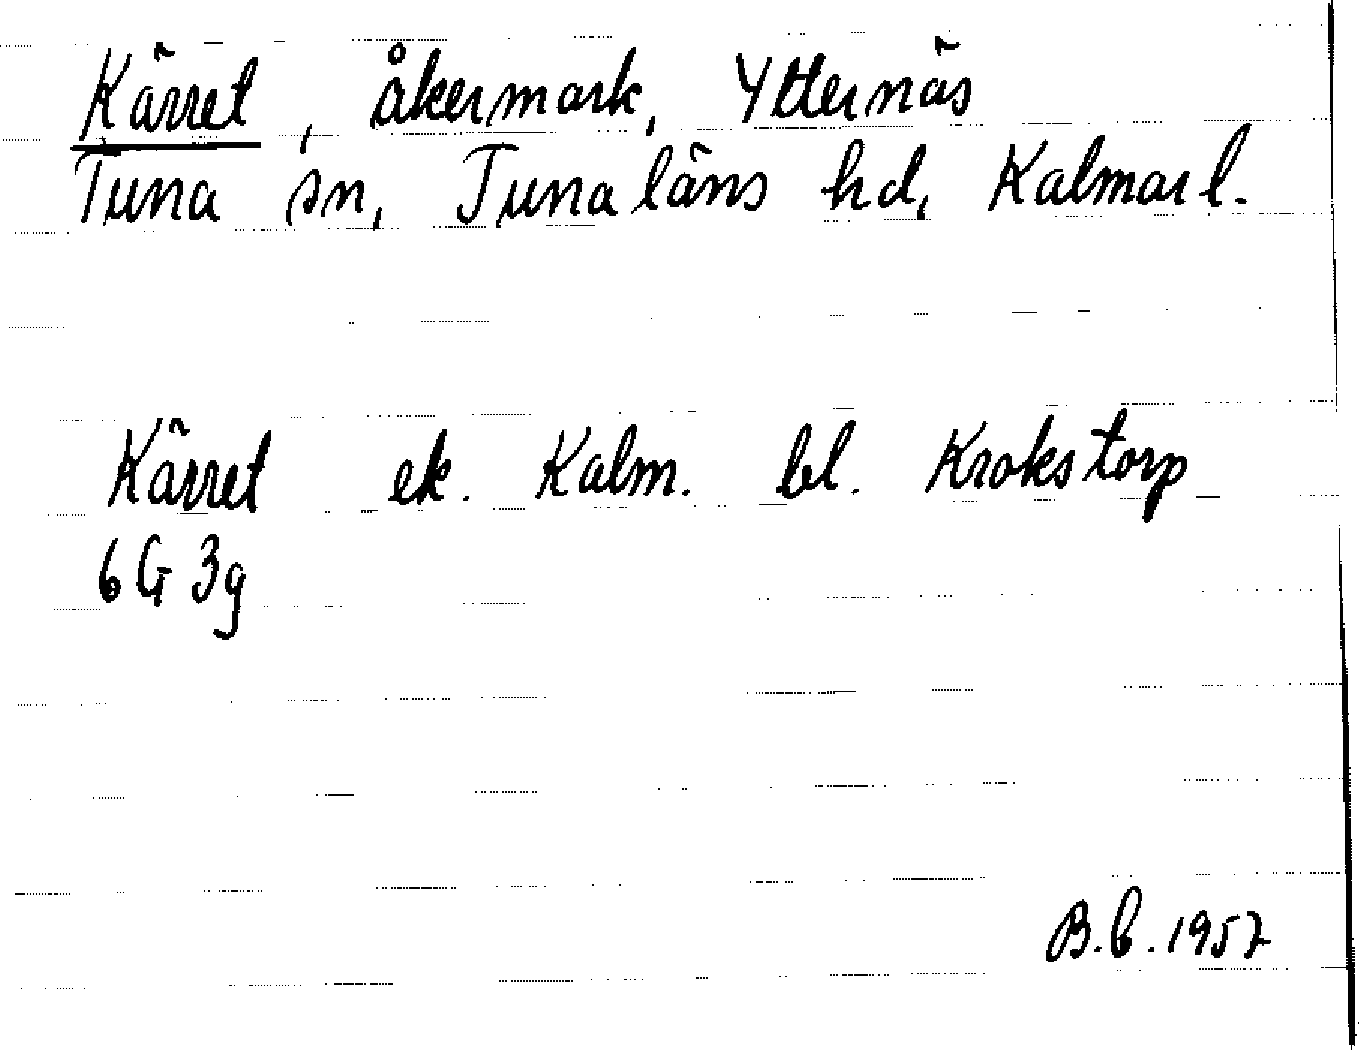 Kärret, åkermark, Ytternäs
Tuna sn, Tunaläns hd, Kalmar l.
Kärret ek. Kalm. bl. Krokstorp
6G 3g
B.b. 1957